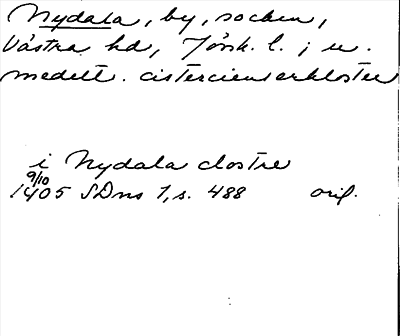 Nydala, by, socken,
Västra hd, Jönk. l. ; u.
medelt. cistercienserkloster
i Nydala clostre
9/10
1405 SDns 1, s. 488 orig.